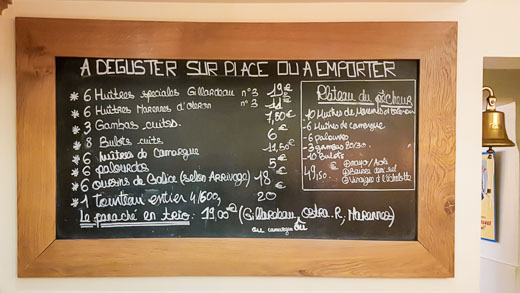 A DEGUSTER SUR PLACE OU A EMPORTER
* 6 Huîtres spéciales Gillardeau n°3 19€
* 6 Huîtres Marennes d'oléron n°3 11€
* 3 Gambas cuites. 7,50€
* 8 Bulots cuits 6€
* 6 huîtres de Camargue 11,50€
* 6 palourdes 5€
* 6 oursins de Galice (selon Arrivage) 18€
* 1 Tourteau entier 4/600g 20
Le panaché en trio. 19,00€ (Gillardeau, Ostra. R, Marennes)
ou camargue ou
Plateau du pêcheur
- 10 Huîtres de Marennes
- 6 Huîtres de camargue
- 6 palourdes
- 3 gambas
- 10 Bulots
49,50€
Mayo/Aïoli
Beurre demi sel
Vinaigre d'échalotte